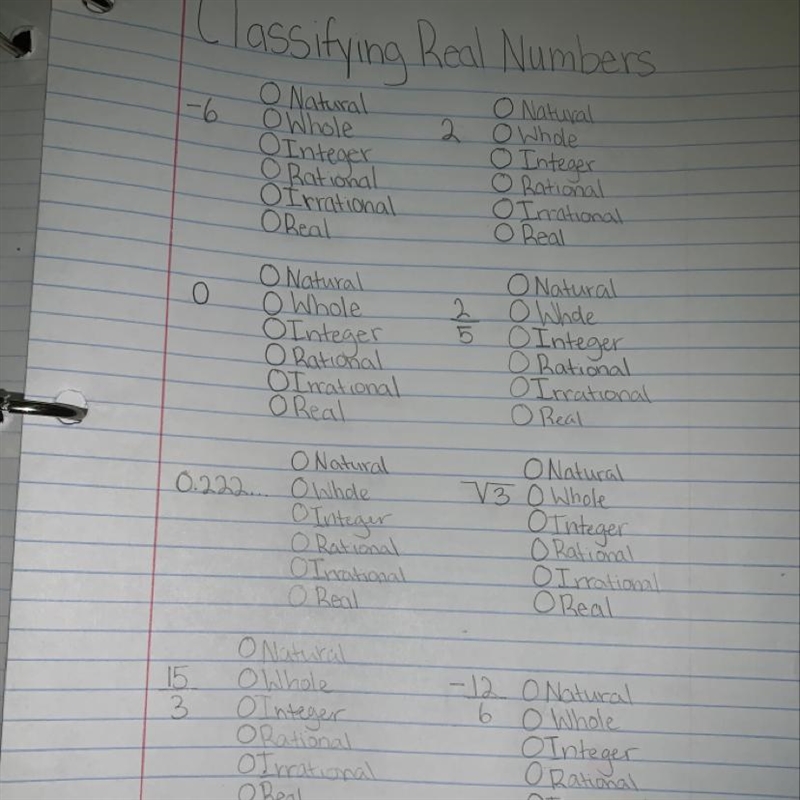 Classifying Real Numbers
-6
O Natural
O Whole
O Integer
O Rational
O Irrational
O Real
2
O Natural
O Whole
O Integer
O Rational
O Irrational
O Real
0
O Natural
O Whole
O Integer
O Rational
O Irrational
O Real
2/5
O Natural
O Whole
O Integer
O Rational
O Irrational
O Real
0.222...
O Natural
O Whole
O Integer
O Rational
O Irrational
O Real
√3
O Natural
O Whole
O Integer
O Rational
O Irrational
O Real
15/3
O Natural
O Whole
O Integer
O Rational
O Irrational
O Real
-12/6
O Natural
O Whole
O Integer
O Rational